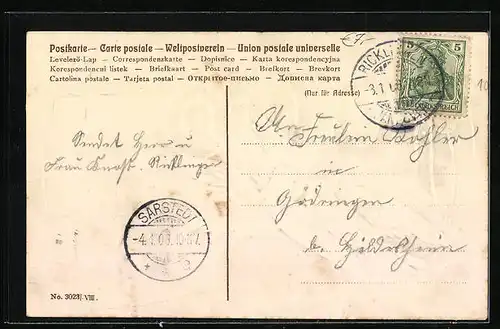 Postkarte — Carte postale — Weltpostverein — Union postale universelle
Levelező-Lap — Correspondenzkarte — Dopisnice — Karta korespondencyjna
Korespondenční lístek — Briefkaart — Post card — Brefkort — Brevkort
Cartolina postale — Tarjeta postal — Открытое-письмо — Дописна карта
(Nur für Adresse)
5 5
DEUTSCHES REICH
RICKLINGEN
3.1.
Fräulein Köhler
in
Gödringen
b. Hildesheim
Sendet Herr u
Frau Ricklingen
SARSTEDT
-4.1.06.
No. 3023/VIII.